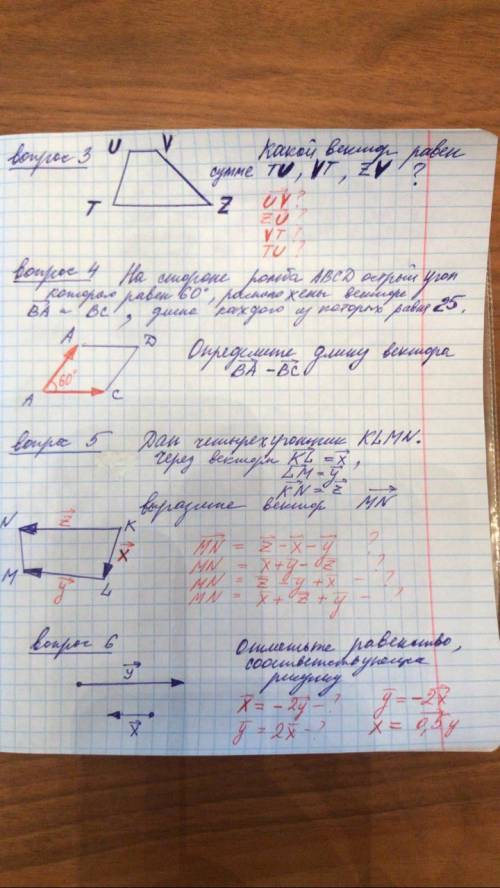 вопрос 3
U V
T Z
Какой вектор равен
сумме TU, VT, ZV ?
UV?
ZU?
VT?
TU?
вопрос 4 На стороне ромба ABCD острый угол
которого равен 60°, расположены векторы
BA и BC, длина каждого из которых равна 25.
A D
60°
A C
Определите длину вектора
BA - BC
вопрос 5 Дан четырехугольник KLMN.
Через векторы KL = x,
LM = y
KN = z
выразите вектор MN
N z K
x
M y L
MN = z - x - y ?
MN = x + y - z ?
MN = z - y + x - ?,
MN = x + z + y -
вопрос 6
y
x
Отметьте равенство,
соответствующее
рисунку
x = -2y - ? y = -2x
y = 2x - ? x = 0,5y